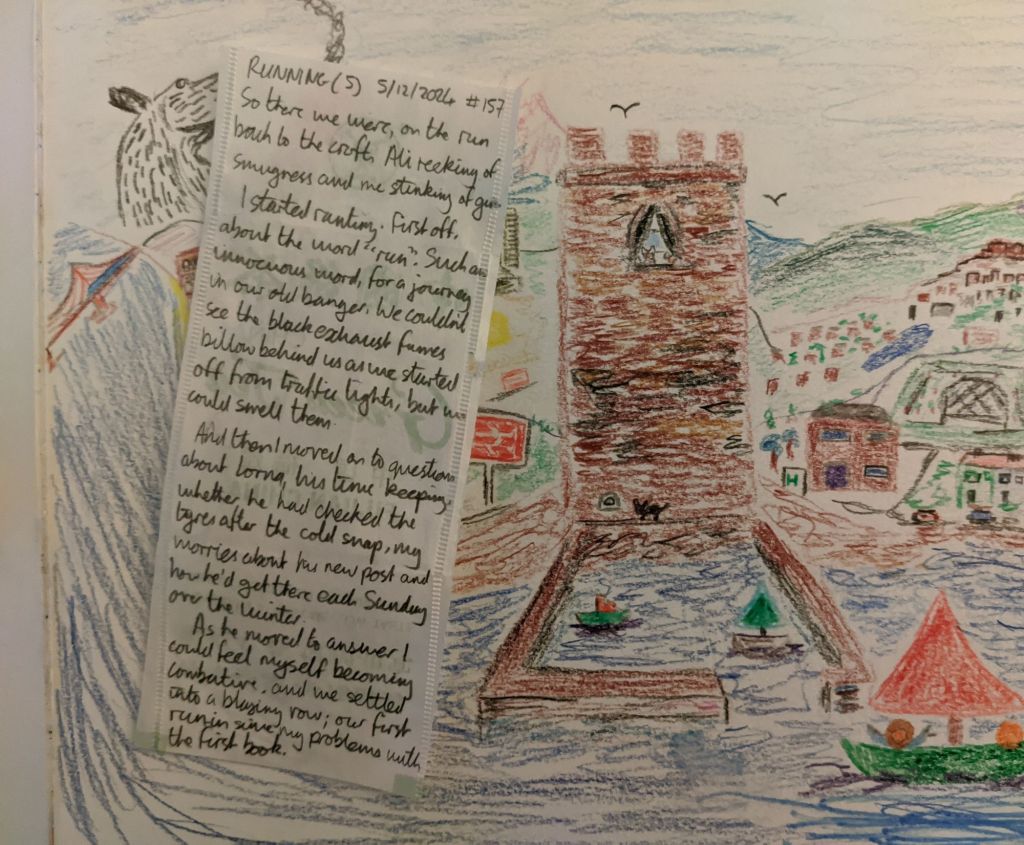 RUNNING (5) 5/12/2024 #157
So there we were, on the run
back to the croft. Ali reeking of
smugness and me stinking of gin
I started ranting. First off,
about the word "run". Such an
innocuous word, for a journey
in our old banger. We couldn't
see the black exhaust fumes
billow behind us as we started
off from traffic lights, but we
could smell them.
And then I moved on to questions
about Lorna, his time keeping,
whether he had checked the
byres after the cold snap, my
worries about his new post and
how he'd get there each Sunday
over the winter.
As he moved to answer I
could feel myself becoming
combative, and we settled
into a blazing row; our first
run in since my problems with
the first book.
H